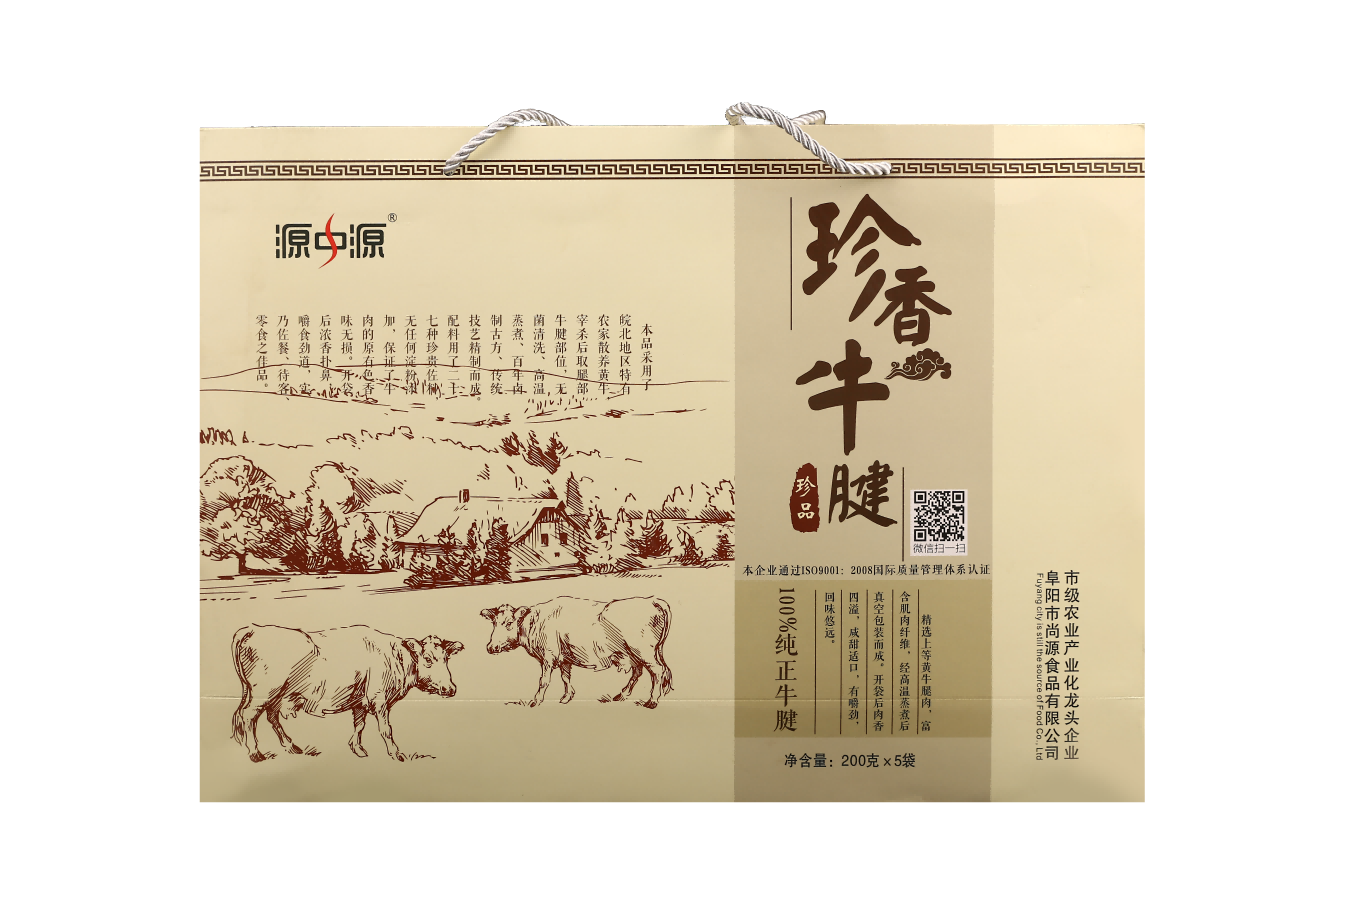 源中源®
本品采用了
皖北地区特有
农家散养黄牛
宰杀后取腿部
牛腱部位，无
菌清洗、高温
蒸煮、百年卤
制古方、传统
技艺精制而成。
配料用了二十
七种珍贵佐料
无任何淀粉添
加，保证了牛
肉的原有色香
味无损。开袋
后浓香扑鼻，
嚼食劲道，实
乃佐餐、待客、
零食之佳品。
珍香牛腱
珍品
微信扫一扫
本企业通过ISO9001：2008国际质量管理体系认证
精选上等黄牛腿肉，富
含肌肉纤维，经高温蒸煮后
真空包装而成。开袋后肉香
四溢，咸甜适口，有嚼劲，
回味悠远。
100%纯正牛腱
净含量：200克×5袋
市级农业产业化龙头企业
阜阳市尚源食品有限公司
Fuyang city is still the source of Food Co., Ltd